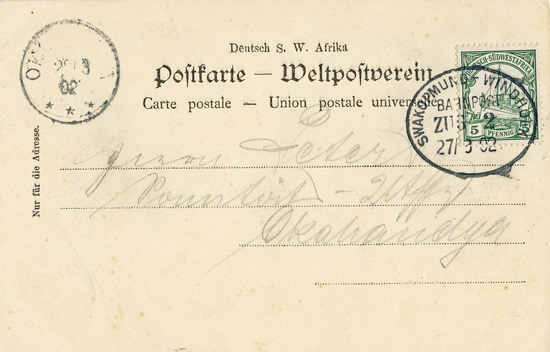 Deutsch S. W. Afrika
Postkarte — Weltpostverein
Carte postale — Union postale universelle
Nur für die Adresse.
SWAKOPMUND - WINDHUK
BAHNPOST
ZUG 2
27/3 02
5 PFENNIG
02
Herrn Peter
Okahandya